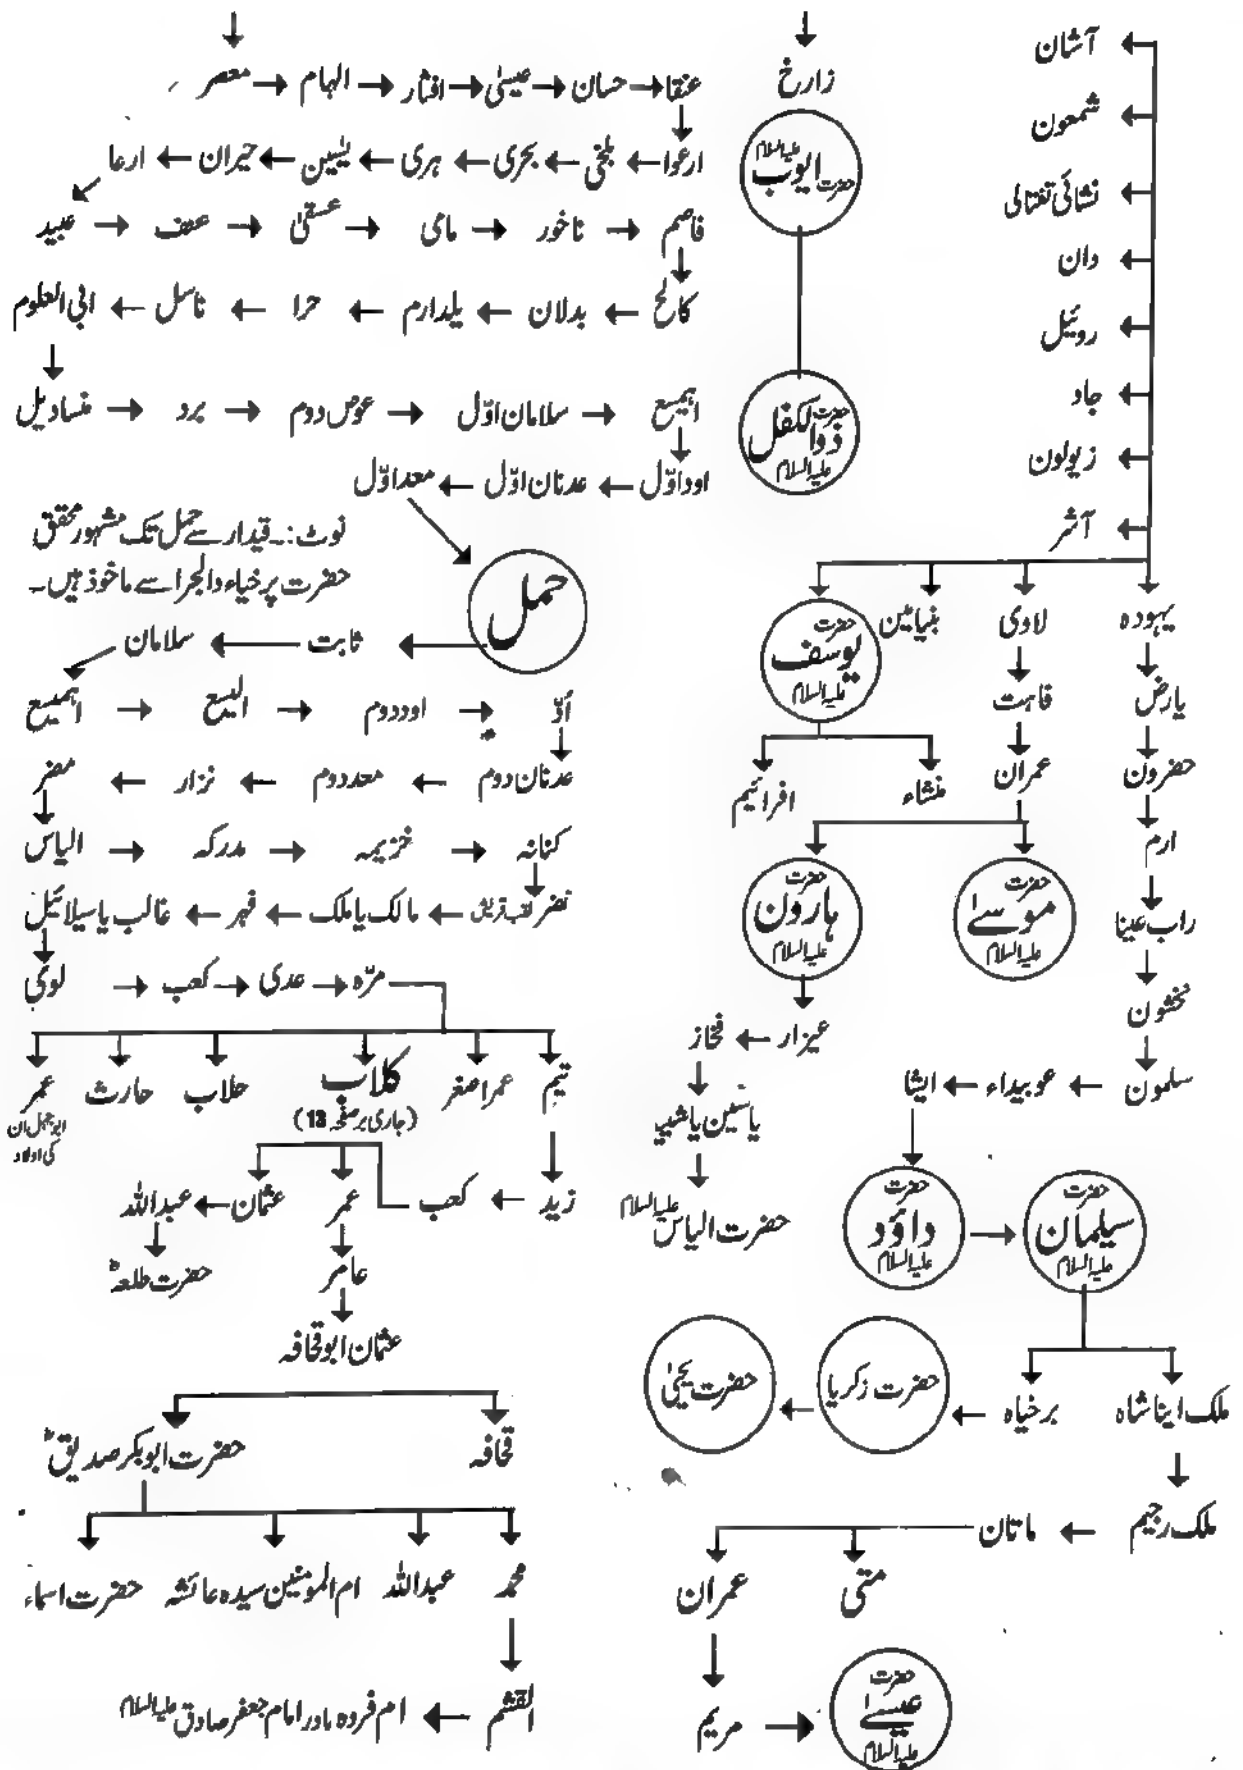 آشان
شمعون
نشائی تفتالی
دان
روئیل
جاد
زیولون
آشر
یہودہ
لاوی
بنیامین
حضرت یوسف علیہ السلام
یارض
حضرون
ارم
راب عینا
نخشون
سلمون ← عوبیداء ← ایشا
حضرت داؤد علیہ السلام → حضرت سیلمان علیہ السلام
ملک ایناشاہ
برخیاہ ← حضرت زکریا ← حضرت یحییٰ
ملک رجیم ← ماتان
متی
عمران
مریم → حضرت عیسےٰ علیہ السلام
قاہت
عمران
حضرت موسےٰ علیہ السلام
حضرت ہارون علیہ السلام
عیزار ← فخاز
یاسین یا شیپ
حضرت الیاس علیہ السلام
منشاء
افرائیم
زارخ
حضرت ایوب علیہ السلام
حضرت ذوالکفل علیہ السلام
معصر ← الہام ← افثار ← عیسیٰ ← حسان ← عنقا
ارعوا ← بلخی ← بحری ← ہری ← یٰسین ← حیران ← ارعا
عبید → عنف → عسقیٰ → مای → ناخور → قاصم
کالخ ← بدلان ← یلدارم ← حرا ← ناسل ← ابی العلوم
منسادیل → برد → عوص دوم → سلامان اوّل → اہمیسع
اود اوّل ← عدنان اوّل ← معد اوّل
نوٹ:۔ قیدار سے حمل تک مشہور محقق
حضرت پر خیاء دالجرا سے ماخوذ ہیں۔
حمل
ثابت ← سلامان
اہمیسع → الیسع → اود دوم → اُدّ
عدنان دوم ← معد دوم ← نزار ← مضر
الیاس → مدرکہ → خزیمہ → کنانہ
نضر لقب قریش ← مالک یا ملک ← فہر ← غالب یا سیلائیل
لوئی → کعب → عدی → مرّہ
تیم
عمر اصغر
کلاب
(جاری بر صفحہ 13)
حلاب
حارث
عمر
ابوجہل ان
کی اولاد
زید ← کعب
عمر
عثمان ← عبداللہ
حضرت طلعہؓ
عامر
عثمان ابو قحافہ
قحافہ
حضرت ابوبکر صدیقؓ
محمد
عبداللہ
ام المومنین سیدہ عائشہ
حضرت اسماء
القشم ← ام فروہ مادر امام جعفر صادق علیہ السلام